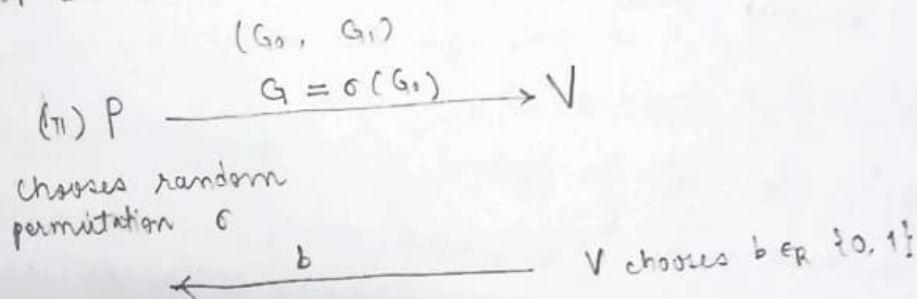 (G₀, G₁)
G = σ(G₀)
(π) P V
chooses random
permutation σ
b
V chooses b ∈R {0, 1}